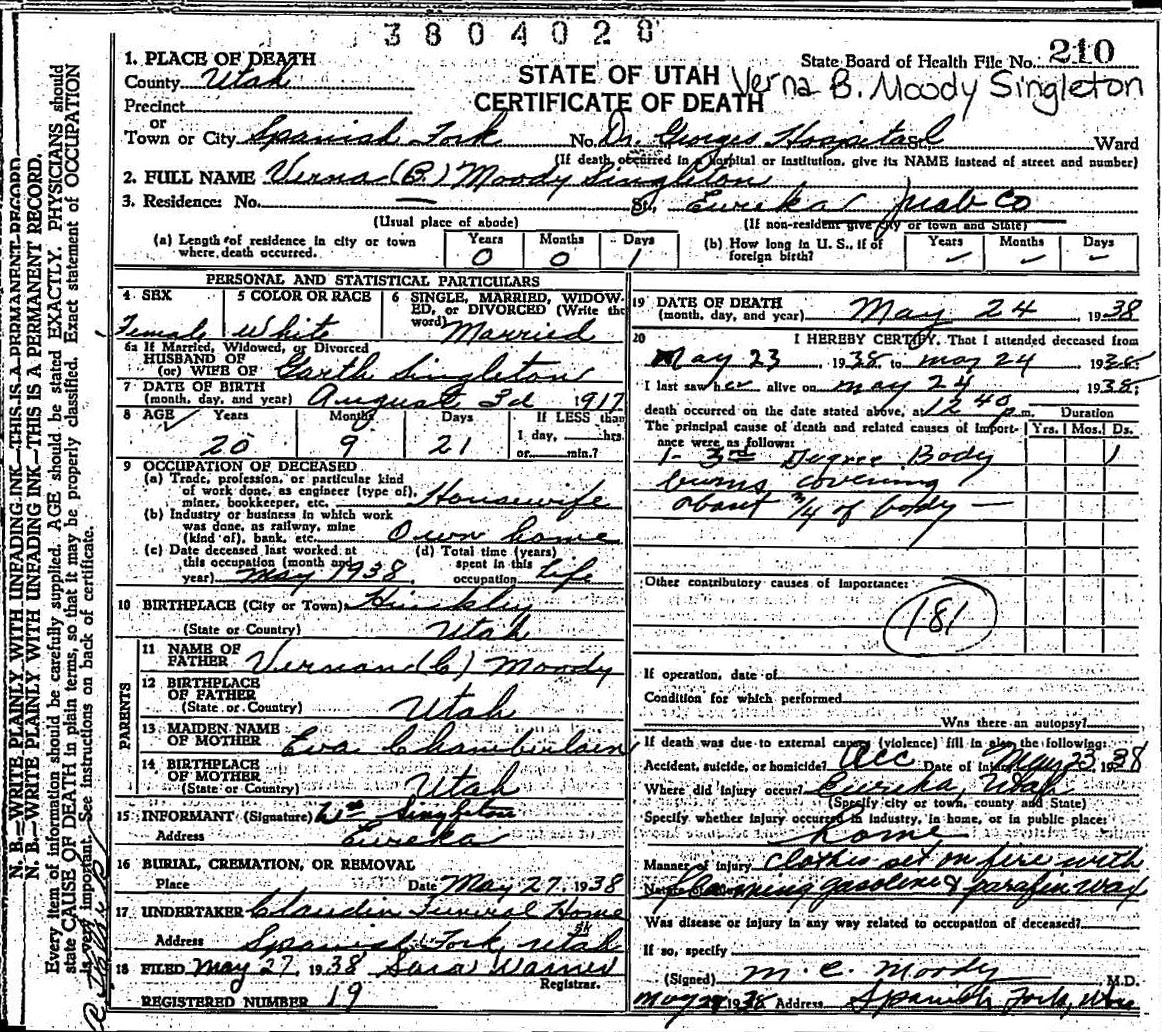 3804028
State Board of Health File No. 210
1. PLACE OF DEATH
County Utah
STATE OF UTAH
Verna B. Moody Singleton
CERTIFICATE OF DEATH
Precinct
or
Town or City Spanish Fork No. Dr. Georges Hospital St. Ward
(If death occurred in a hospital or institution, give its NAME instead of street and number)
2. FULL NAME Verna (B) Moody Singleton
3. Residence: No. — St., Eureka Juab Co
(Usual place of abode) (If non-resident give city or town and State)
(a) Length of residence in city or town where death occurred. Years 0 Months 0 Days 1
(b) How long in U. S., if of foreign birth? Years – Months – Days –
PERSONAL AND STATISTICAL PARTICULARS
4 SEX Female
5 COLOR OR RACE White
6 SINGLE, MARRIED, WIDOWED, or DIVORCED (Write the word) Married
6a If Married, Widowed, or Divorced
HUSBAND OF
(or) WIFE OF Garth Singleton
7 DATE OF BIRTH
(month, day, and year) August 3d 1917
8 AGE Years 20 Months 9 Days 21 If LESS than 1 day, hrs or min.?
9 OCCUPATION OF DECEASED
(a) Trade, profession, or particular kind
of work done, as engineer (type of),
miner, bookkeeper, etc. Housewife
(b) Industry or business in which work
was done, as railway, mine
(kind of), bank, etc. Own home
(c) Date deceased last worked at
this occupation (month and
year) May 1938
(d) Total time (years)
spent in this
occupation Life
10 BIRTHPLACE (City or Town) Hinkley
(State or Country) Utah
PARENTS
11 NAME OF
FATHER Vernan (C) Moody
12 BIRTHPLACE
OF FATHER
(State or Country) Utah
13 MAIDEN NAME
OF MOTHER Eva Chamberlain
14 BIRTHPLACE
OF MOTHER
(State or Country) Utah
15 INFORMANT (Signature) Wm Singleton
Address Eureka
16 BURIAL, CREMATION, OR REMOVAL
Place Date May 27, 1938
17 UNDERTAKER Claudin Funeral Home
Address Spanish Fork, Utah
18 FILED May 27, 1938 Sara Warner
Registrar.
REGISTERED NUMBER 19
19 DATE OF DEATH
(month, day, and year) May 24 1938
20 I HEREBY CERTIFY, That I attended deceased from
May 23 1938 to May 24 1938
I last saw her alive on May 24 1938
death occurred on the date stated above, at 12 40 p.m. Duration
The principal cause of death and related causes of importance were as follows: Yrs. Mos. Ds.
1- 3rd Degree Body 1
burns covering
about 3/4 of body —
Other contributory causes of importance:
181
If operation, date of
Condition for which performed
Was there an autopsy?
If death was due to external cause (violence) fill in also the following:
Accident, suicide, or homicide? Acc Date of injury May 23 1938
Where did injury occur? Eureka, Utah
(Specify city or town, county and State)
Specify whether injury occurred in industry, in home, or in public place:
home
Manner of injury clothes set on fire with
Nature of injury flaming gasoline & parafin wax
Was disease or injury in any way related to occupation of deceased?
If so, specify
(Signed) M. C. Moody M.D.
1938 Address Spanish Fork, Utah
N. B.—WRITE PLAINLY WITH UNFADING INK—THIS IS A PERMANENT RECORD.
N. B.—WRITE PLAINLY WITH UNFADING INK—THIS IS A PERMANENT RECORD.
Every item of information should be carefully supplied. AGE should be stated EXACTLY. PHYSICIANS should
state CAUSE OF DEATH in plain terms, so that it may be properly classified. Exact statement of OCCUPATION
is very important. See instructions on back of certificate.